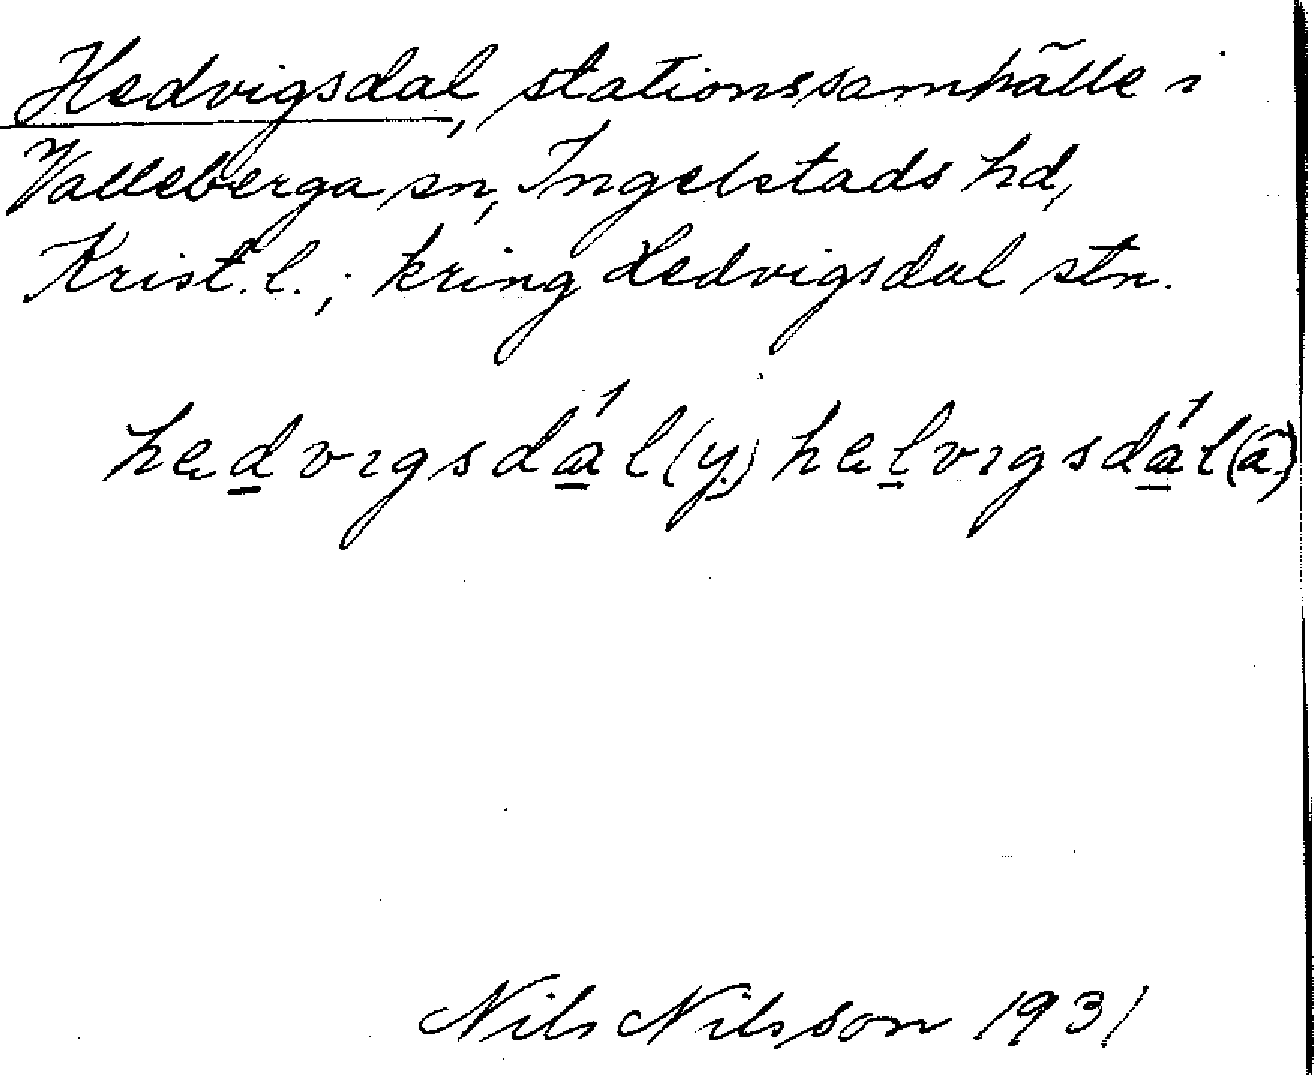 Hedvigsdal, stationssamhälle i
Valleberga sn, Ingelstads hd,
Krist. l.; kring Hedvigsdal stn.
hedvıgsdál (y) helvıgsdál (ä)
Nils Nilsson 1931